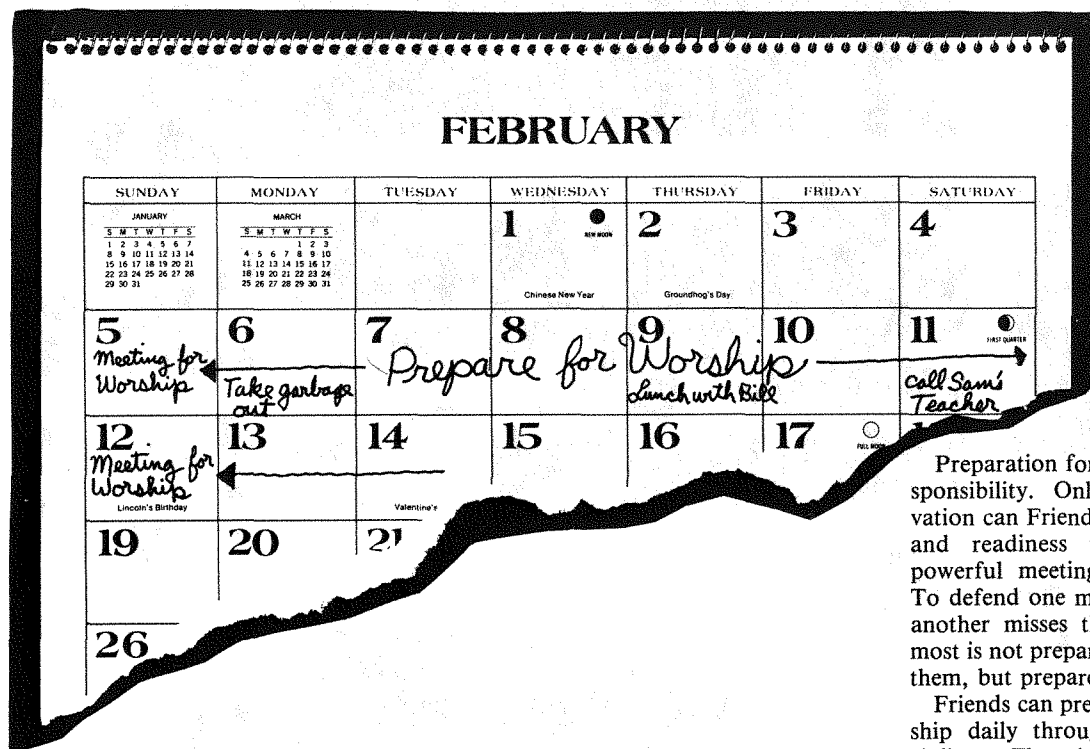 FEBRUARY
SUNDAY MONDAY TUESDAY WEDNESDAY THURSDAY FRIDAY SATURDAY
JANUARY
S M T W T F S
1 2 3 4 5 6 7
8 9 10 11 12 13 14
15 16 17 18 19 20 21
22 23 24 25 26 27 28
29 30 31
MARCH
S M T W T F S
1 2 3
4 5 6 7 8 9 10
11 12 13 14 15 16 17
18 19 20 21 22 23 24
25 26 27 28 29 30 31
1 2 3 4
NEW MOON
Chinese New Year Groundhog's Day
5 6 7 8 9 10 11
FIRST QUARTER
Meeting for
Worship
Prepare for Worship
Take garbage
out
Lunch with Bill
Call Sam's
Teacher
12 13 14 15 16 17
FULL MOON
Meeting for
Worship
Lincoln's Birthday Valentine's
19 20 21
26
Preparation for
sponsibility. Onl
vation can Friend
and readiness
powerful meeting
To defend one m
another misses t
most is not prepar
them, but prepare
Friends can pre
ship daily throu